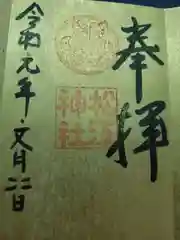 奉拝
松江
神社
令和元年・文月二二日